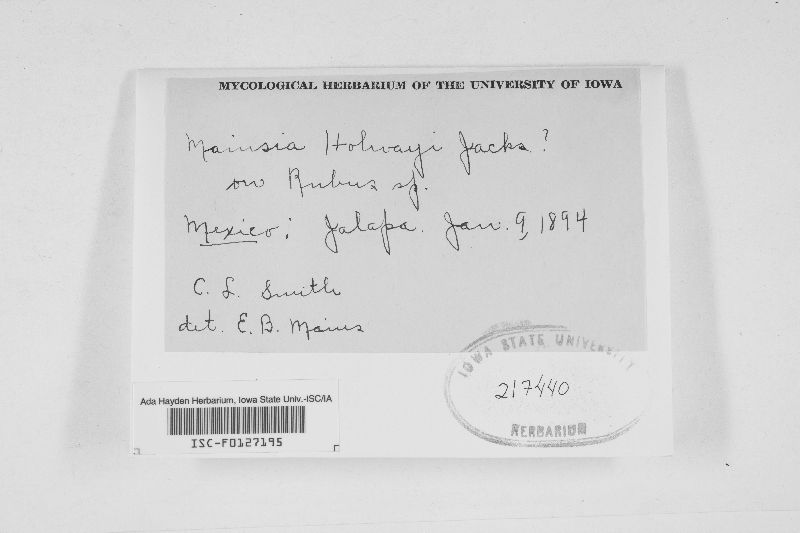 MYCOLOGICAL HERBARIUM OF THE UNIVERSITY OF IOWA
Mainsia Holwayi Jacks?
on Rubus sp.
Mexico: Jalapa. Jan. 9, 1894
C. L. Smith
det. E. B. Mains
IOWA STATE UNIVERSITY
217440
HERBARIUM
Ada Hayden Herbarium, Iowa State Univ.-ISC/IA
ISC-F0127195